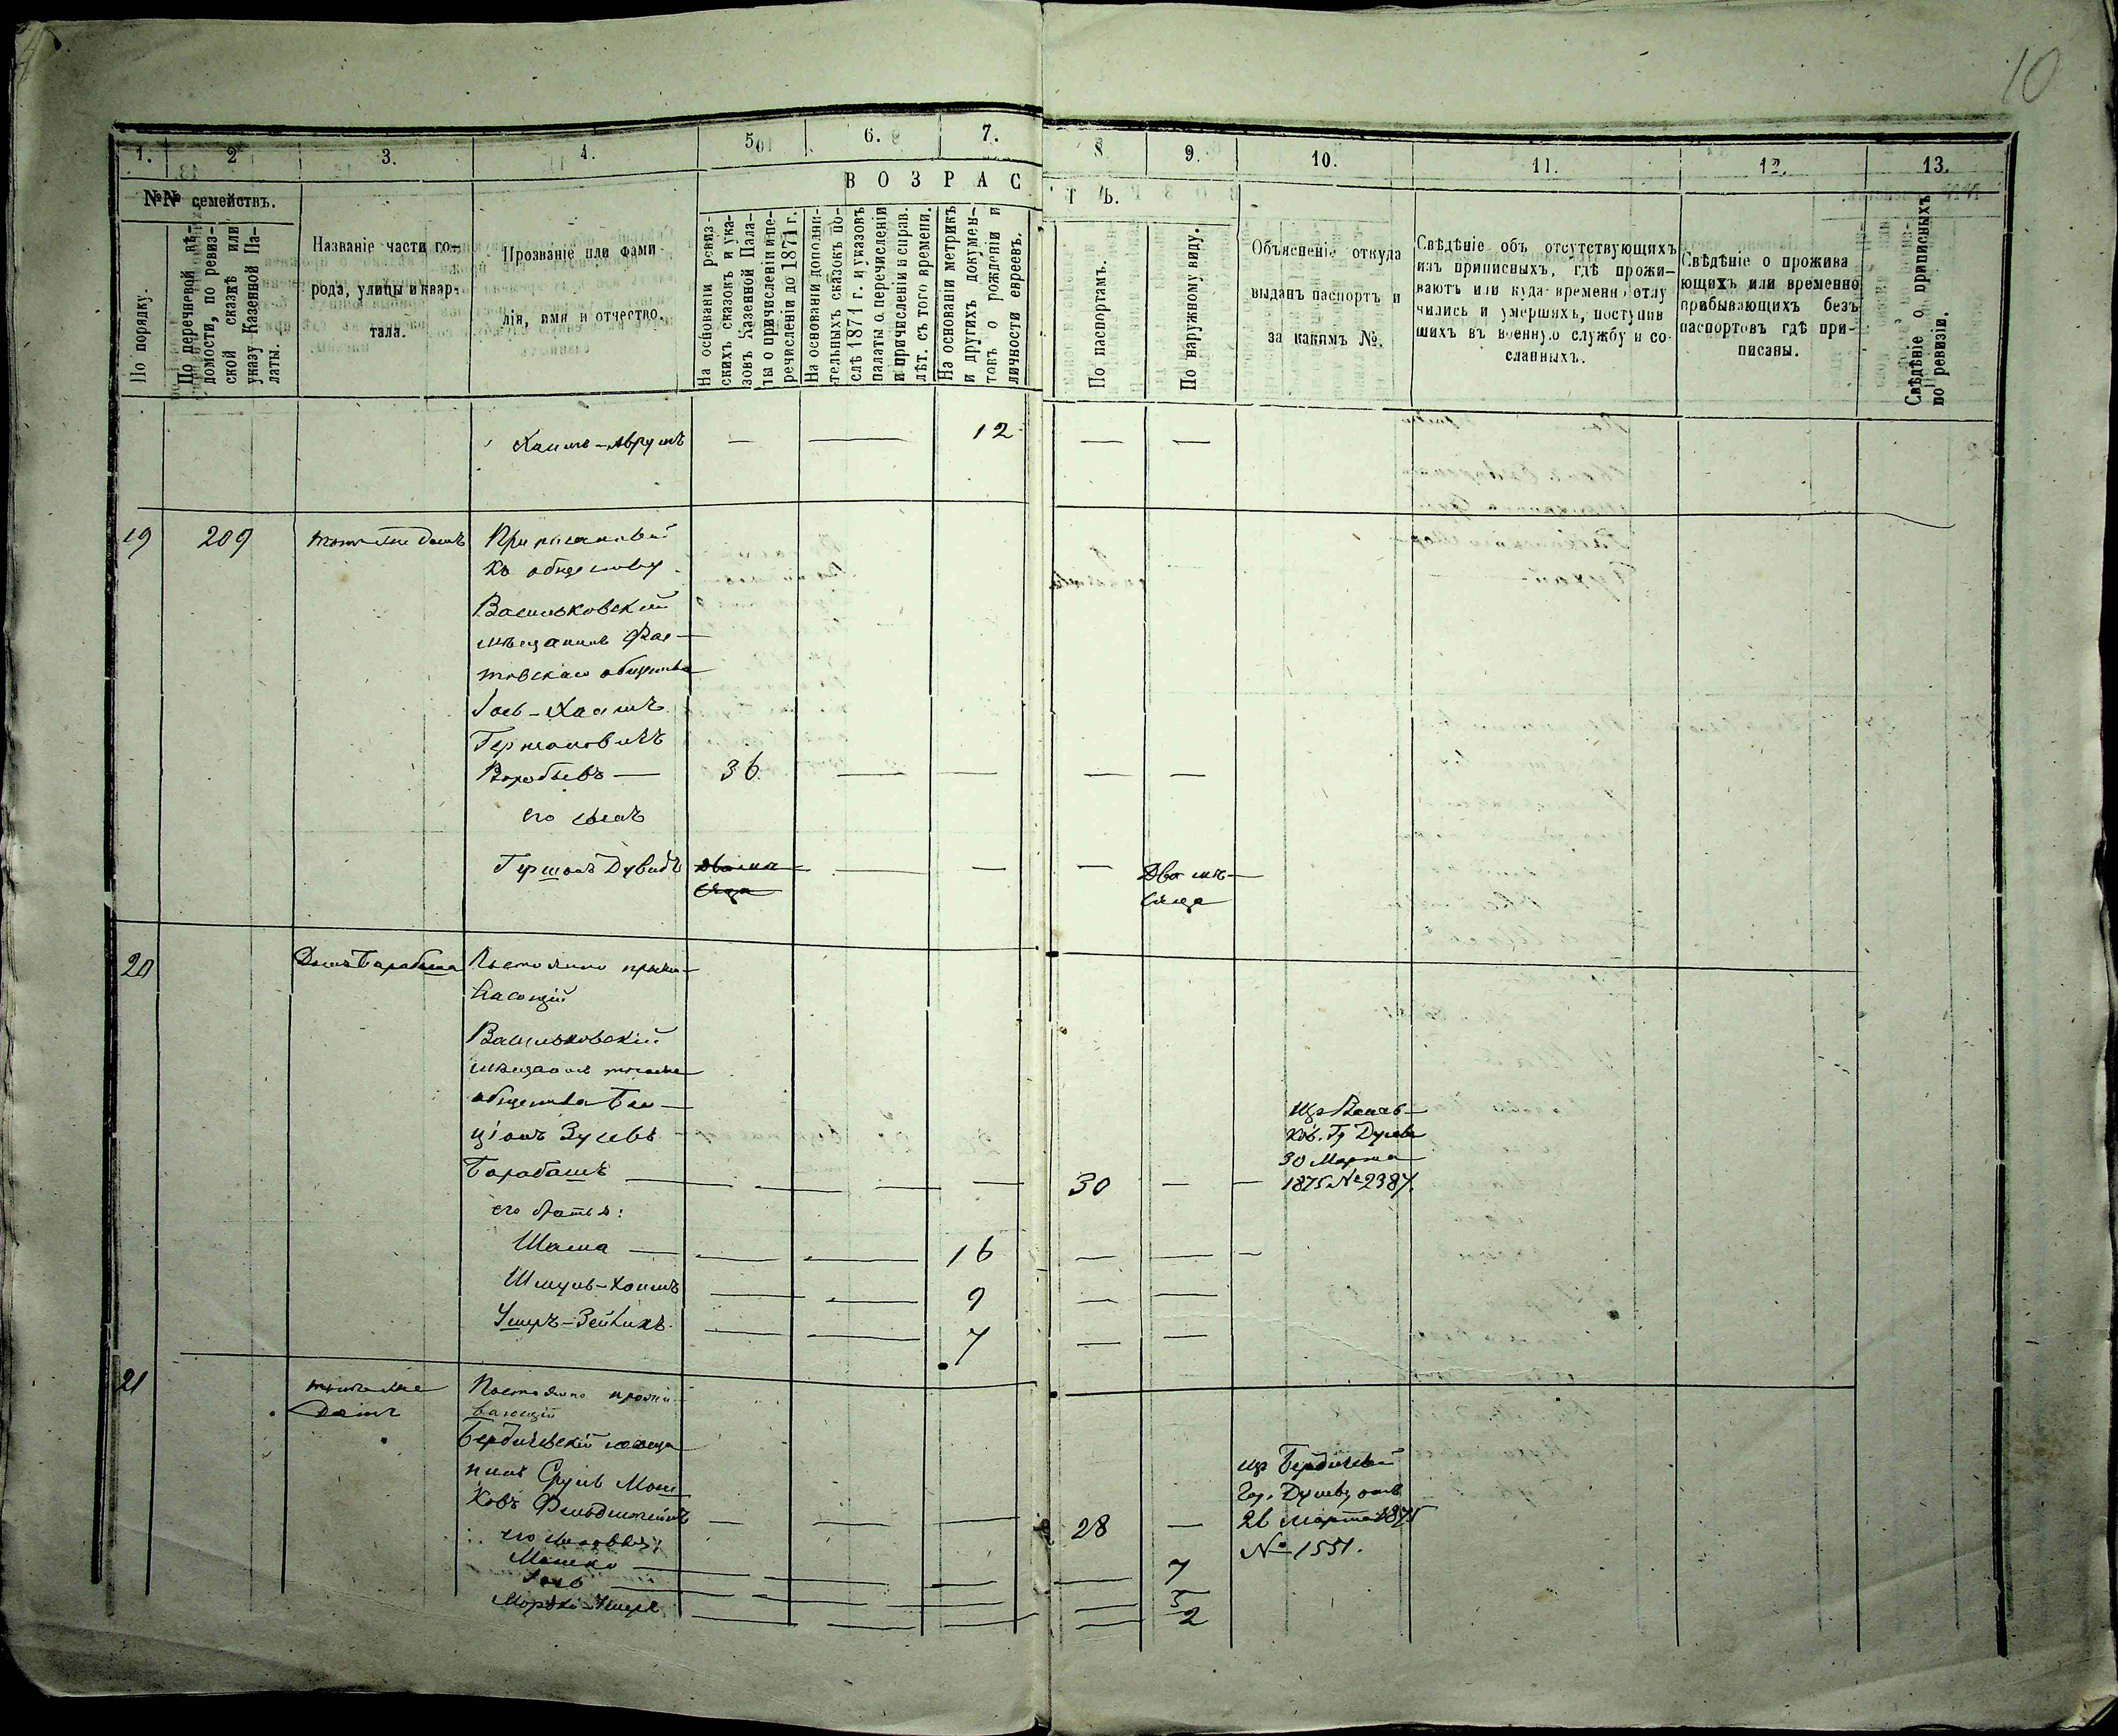 10
1. 2 3. 4. 5. 6. 7. 8. 9. 10. 11. 12. 13.
№№ семействъ.
В О З Р А С Т Ъ.
По порядку.
По перечневой вѣ-
домости, по ревиз-
ской сказкѣ или
указу Казенной Па-
латы.
Названіе части го-
рода, улицы и квар-
тала.
Прозваніе или фами-
лія, имя и отчество.
На основаніи ревиз-
скихъ сказокъ и ука-
зовъ Казенной Пала-
ты о причисленіи и пе-
речисленіи до 1871 г.
На основаніи дополни-
тельныхъ сказокъ по-
слѣ 1871 г. и указовъ
палаты о перечисленіи
и причисленіи и справ.
лѣт. съ того времени.
На основаніи метрикъ
и другихъ докумен-
товъ о рожденіи и
личности евреевъ.
По паспортамъ.
По наружному виду.
Объясненіе откуда
выданъ паспортъ и
за какимъ №.
Свѣдѣніе объ отсутствующихъ
изъ приписныхъ, гдѣ прожи-
ваютъ или куда временно отлу
чились и умершихъ, поступив
шихъ въ военную службу и со-
сланныхъ.
Свѣдѣніе о прожива
ющихъ или временно
прибывающихъ безъ
паспортовъ гдѣ при-
писаны.
Свѣдѣніе о приписныхъ
по ревизіи.
Хаимъ-Аврумъ — — 12 — —
19 209 томъ же домѣ Приписанный
къ обществу
Васильковскій
мѣщанинъ Фас-
товскаго общества
Іось-Хаимъ
Гершоновичъ
Воробьевъ — 36 — — — —
его сынъ
Гершонъ Дувидъ Два мѣ- — — — Два мѣ-
сяца сяца
20 Домъ Барабаша Постоянно прожи-
вающій
Васильковскій
мѣщанинъ того же
общества Бен-
ціонъ Зусевъ
Барабашъ — — — — 30 — —
Изъ Василь-
ков. Гр Думы
30 Марта
1875 № 2387.
его братья:
Шама — — — 16 — — —
Шмуль-Хаимъ — — 9 — —
Ушеръ-Зейликъ — — 7 — —
21 томъ же
домѣ
Постоянно прожи-
вающій
Бердичевскій мѣща
нинъ Сруль Мош
ковъ Фельдштейнъ — — — 28 —
изъ Бердичевской
Гор. Думы отъ
26 Марта 1875
№ 1551.
его сыновья:
Мошко — — — — — 7
Іось — — — — — 5
Мордко-Ушеръ — — — — 2